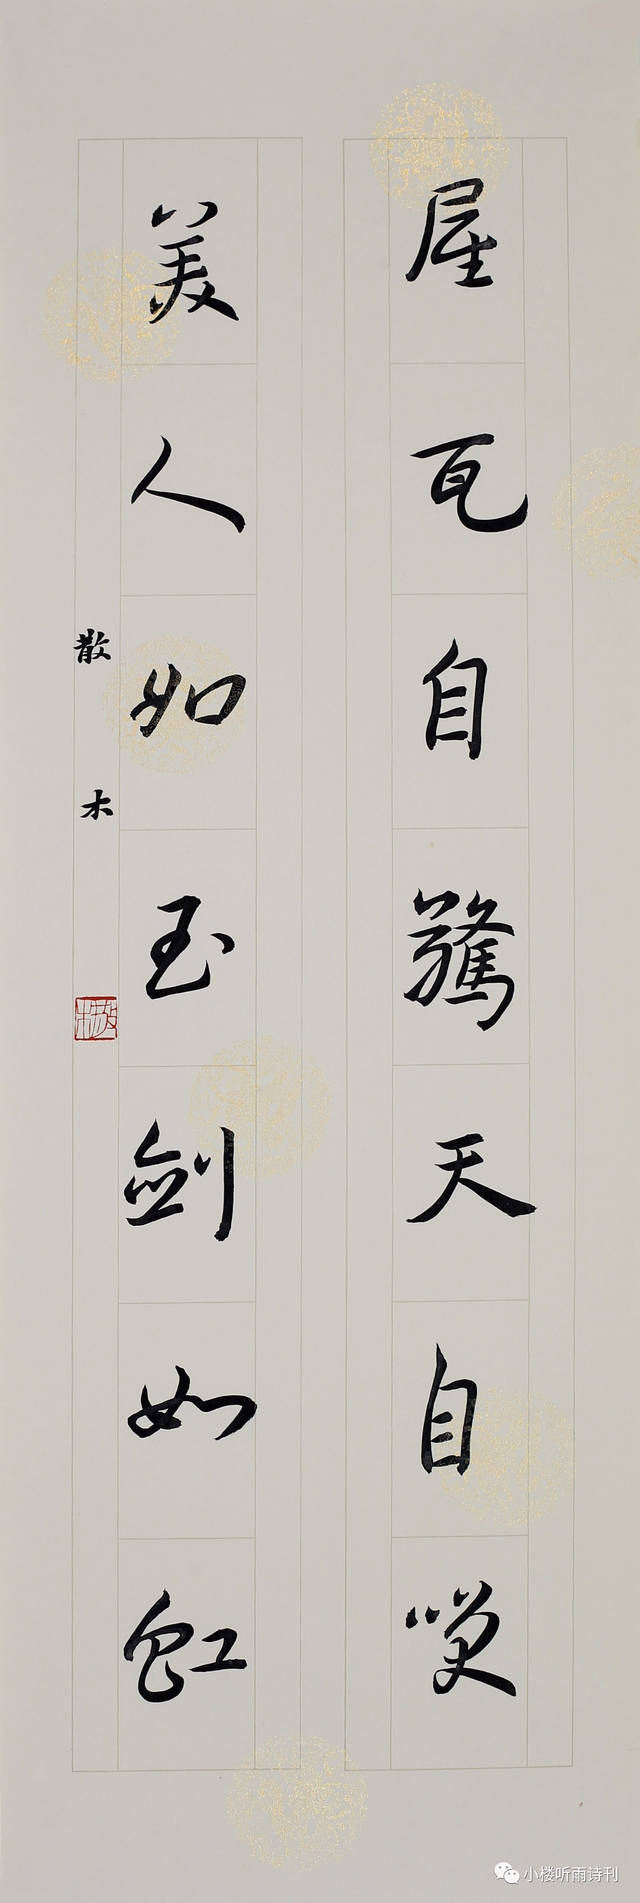 屋瓦自驚天自笑
美人如玉劍如虹
散木
散木
小楼听雨诗刊